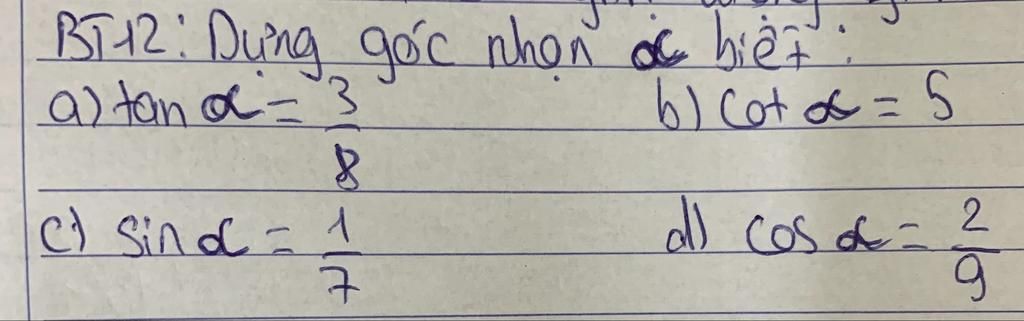 BT12: Dựng góc nhọn α biết:
a) tan α = 3/8 b) cot α = 5
c) sin α = 1/7 d) cos α = 2/9